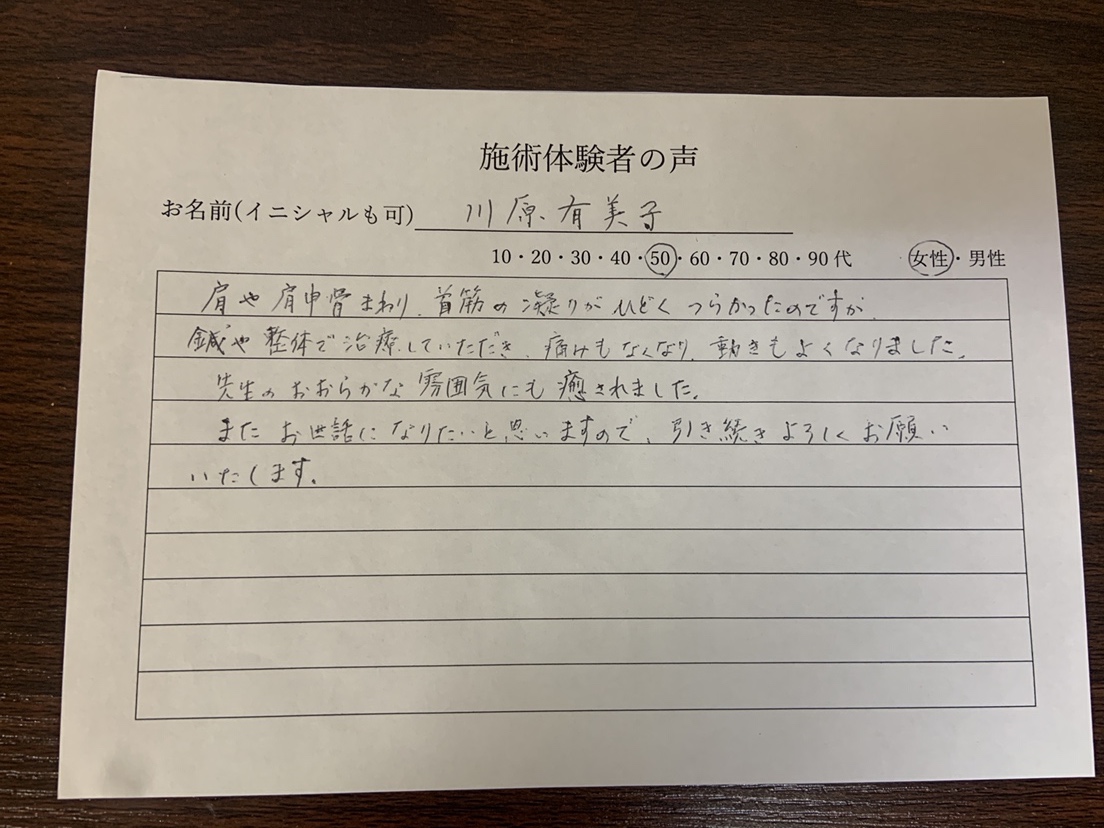 施術体験者の声
お名前(イニシャルも可) 川原有美子
10・20・30・40・50・60・70・80・90代 女性・男性
肩や肩甲骨まわり、首筋の凝りがひどくつらかったのですが、
鍼や整体で治療していただき、痛みもなくなり、動きもよくなりました。
先生のおおらかな雰囲気にも癒されました。
またお世話になりたいと思いますので、引き続きよろしくお願い
いたします。